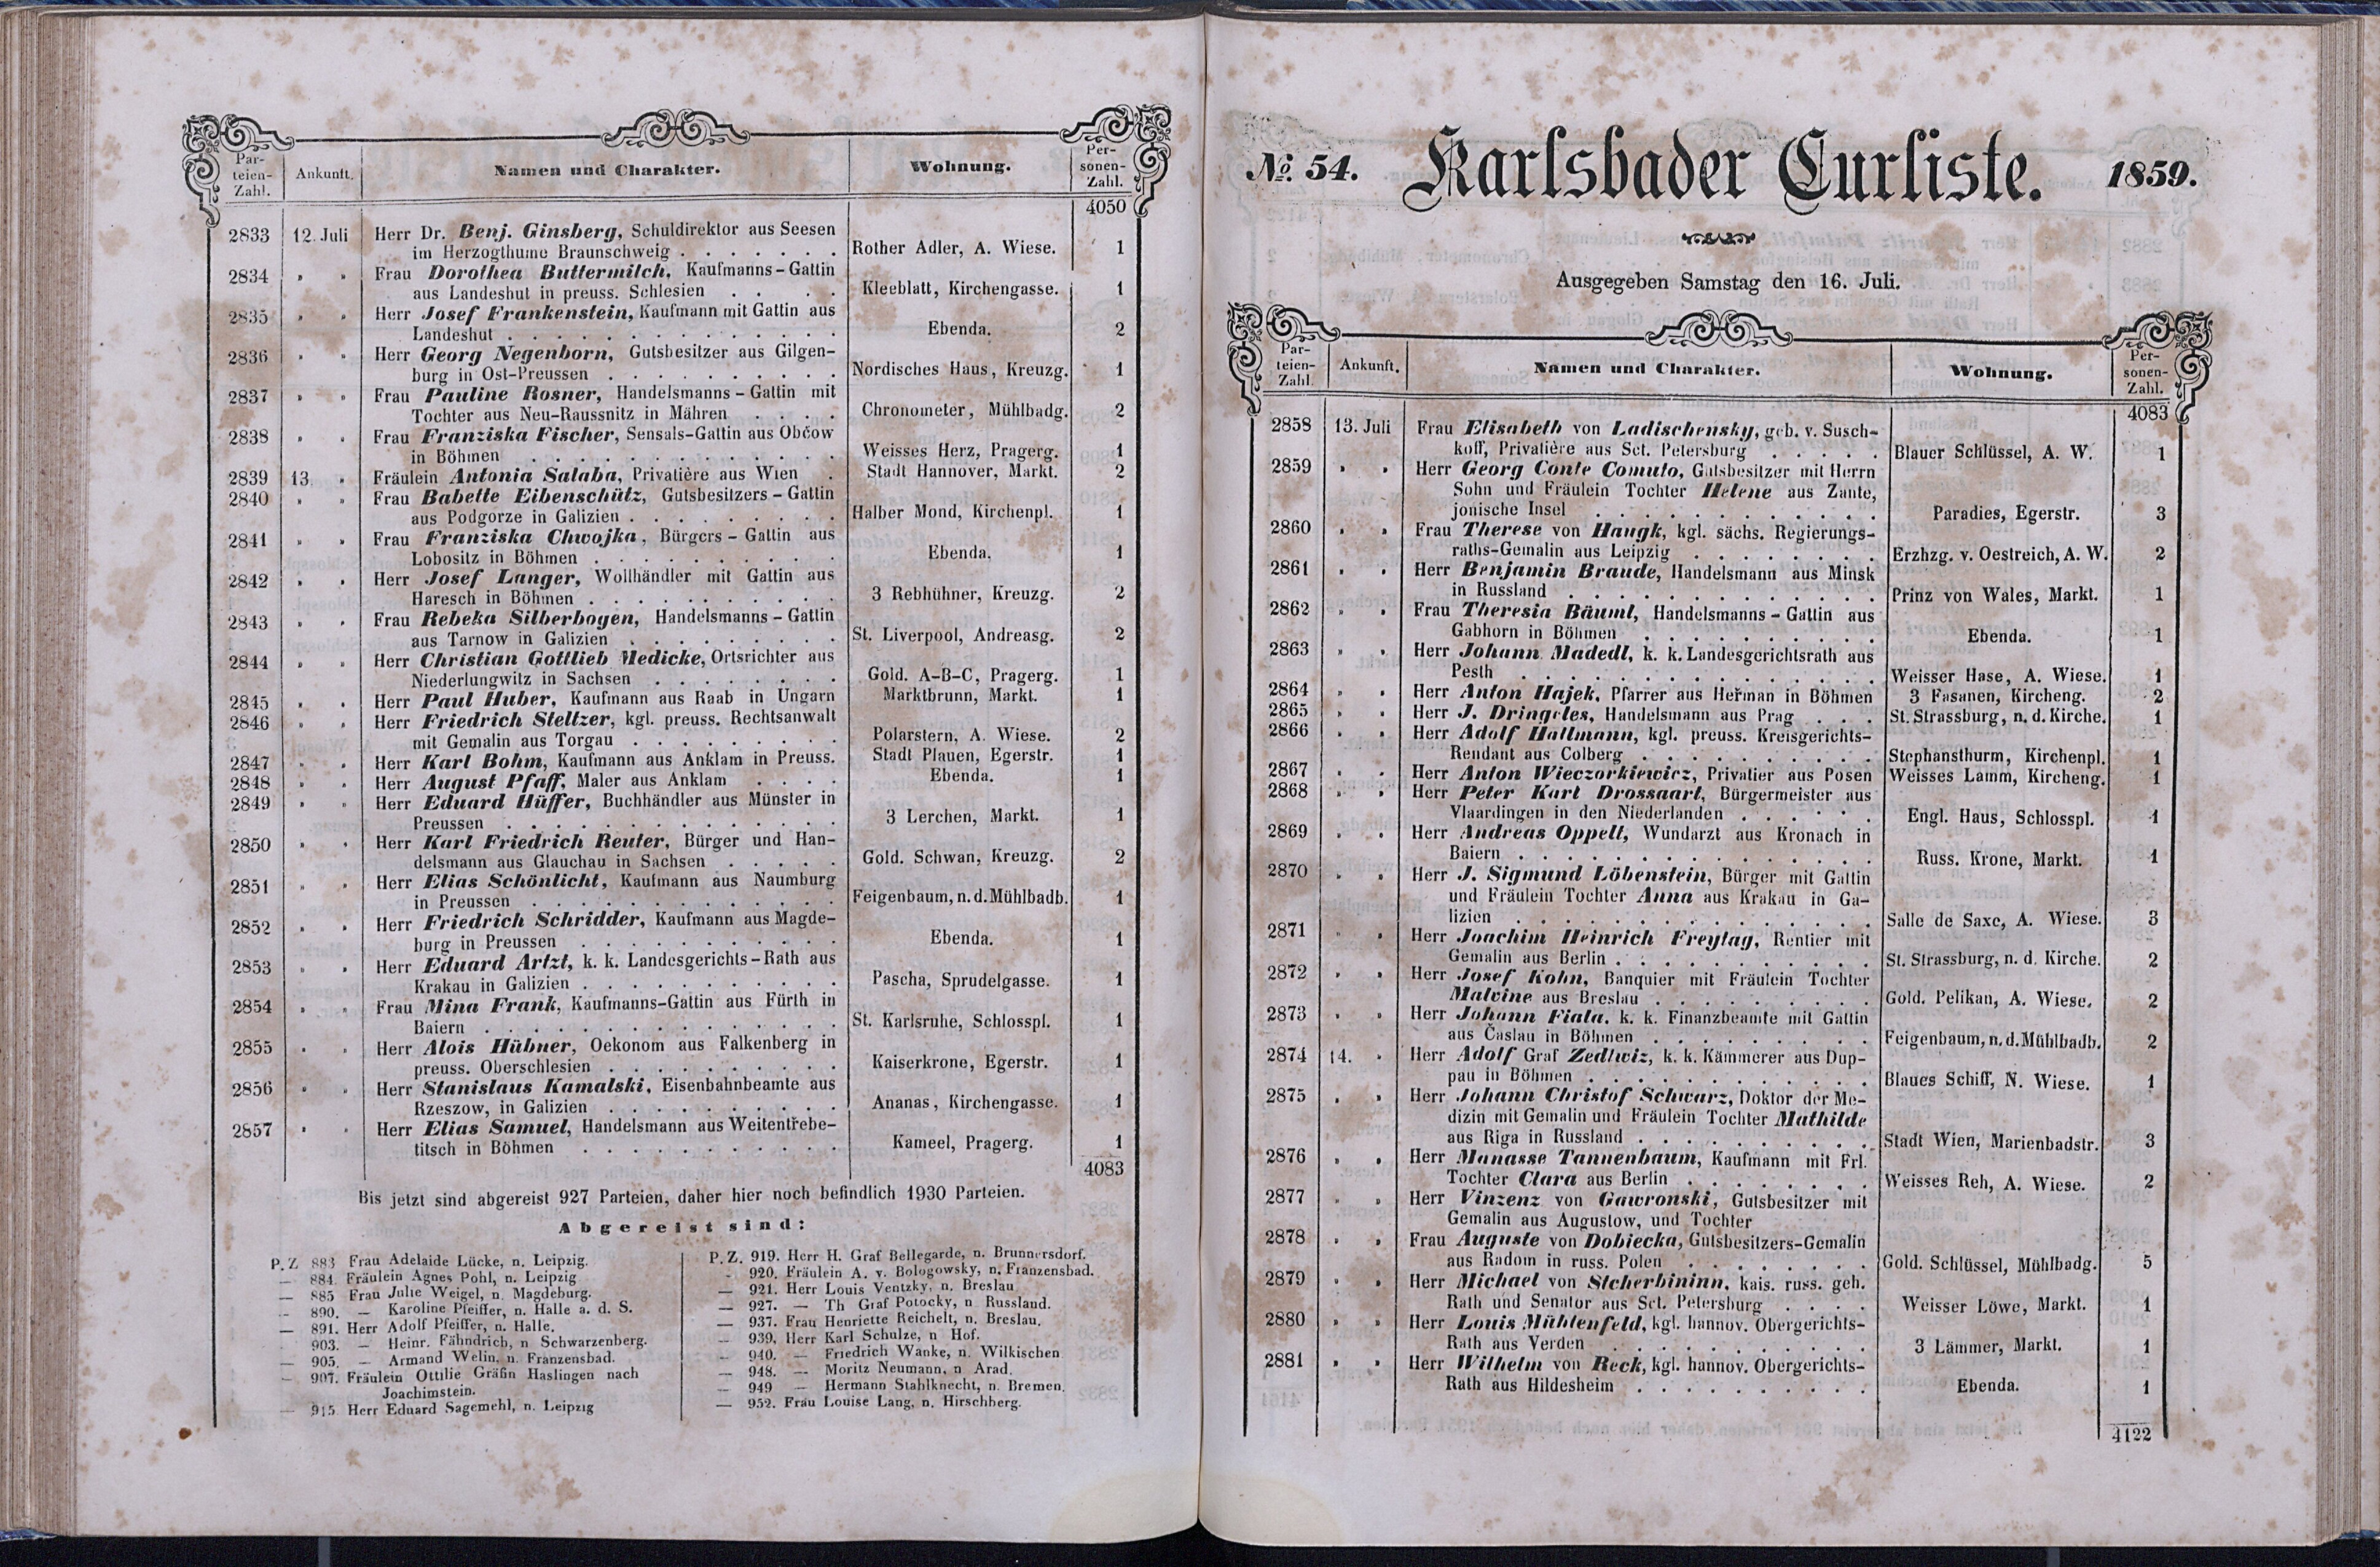 Par-
teien-
Zahl.
Ankunft.
Namen und Charakter.
Wohnung.
Per-
sonen-
Zahl.
4050
2833 12. Juli Herr Dr. Benj. Ginsberg, Schuldirektor aus Seesen
im Herzogthume Braunschweig . . . . . . . Rother Adler, A. Wiese. 1
2834 „ „ Frau Dorothea Buttermilch, Kaufmanns-Gattin
aus Landeshut in preuss. Schlesien . . . . Kleeblatt, Kirchengasse. 1
2835 „ „ Herr Josef Frankenstein, Kaufmann mit Gattin aus
Landeshut . . . . . . . . . . . . Ebenda. 2
2836 „ „ Herr Georg Negenborn, Gutsbesitzer aus Gilgen-
burg in Ost-Preussen . . . . . . . . . . Nordisches Haus, Kreuzg. 1
2837 „ „ Frau Pauline Rosner, Handelsmanns-Gattin mit
Tochter aus Neu-Raussnitz in Mähren . . . . Chronometer, Mühlbadg. 2
2838 „ „ Frau Franziska Fischer, Sensals-Gattin aus Obćow
in Böhmen . . . . . . . . . . . . Weisses Herz, Pragerg. 1
2839 13 „ Fräulein Antonia Salaba, Privatière aus Wien . Stadt Hannover, Markt. 2
2840 „ „ Frau Babette Eibenschütz, Gutsbesitzers-Gattin
aus Podgorze in Galizien . . . . . . . . . Halber Mond, Kirchenpl. 1
2841 „ „ Frau Franziska Chwojka, Bürgers-Gattin aus
Lobositz in Böhmen . . . . . . . . . . Ebenda. 1
2842 „ „ Herr Josef Langer, Wollhändler mit Gattin aus
Haresch in Böhmen . . . . . . . . . . . 3 Rebhühner, Kreuzg. 2
2843 „ „ Frau Rebeka Silberbogen, Handelsmanns-Gattin
aus Tarnow in Galizien . . . . . . . . . St. Liverpool, Andreasg. 2
2844 „ „ Herr Christian Gottlieb Medicke, Ortsrichter aus
Niederlungwitz in Sachsen . . . . . . . . Gold. A-B-C, Pragerg. 1
2845 „ „ Herr Paul Huber, Kaufmann aus Raab in Ungarn Marktbrunn, Markt. 1
2846 „ „ Herr Friedrich Steltzer, kgl. preuss. Rechtsanwalt
mit Gemalin aus Torgau . . . . . . . . . Polarstern, A. Wiese. 2
2847 „ „ Herr Karl Bohm, Kaufmann aus Anklam in Preuss. Stadt Plauen, Egerstr. 1
2848 „ „ Herr August Pfaff, Maler aus Anklam . . . . Ebenda. 1
2849 „ „ Herr Eduard Hüffer, Buchhändler aus Münster in
Preussen . . . . . . . . . . . . . 3 Lerchen, Markt. 1
2850 „ „ Herr Karl Friedrich Reuter, Bürger und Han-
delsmann aus Glauchau in Sachsen . . . . . Gold. Schwan, Kreuzg. 2
2851 „ „ Herr Elias Schönlicht, Kaufmann aus Naumburg
in Preussen . . . . . . . . . . . . Feigenbaum, n. d. Mühlbadb. 1
2852 „ „ Herr Friedrich Schridder, Kaufmann aus Magde-
burg in Preussen . . . . . . . . . . . Ebenda. 1
2853 „ „ Herr Eduard Artzt, k. k. Landesgerichts-Rath aus
Krakau in Galizien . . . . . . . . . . . Pascha, Sprudelgasse. 1
2854 „ „ Frau Mina Frank, Kaufmanns-Gattin aus Fürth in
Baiern . . . . . . . . . . . . . . St. Karlsruhe, Schlosspl. 1
2855 „ „ Herr Alois Hübner, Oekonom aus Falkenberg in
preuss. Oberschlesien . . . . . . . . . . Kaiserkrone, Egerstr. 1
2856 „ „ Herr Stanislaus Kamalski, Eisenbahnbeamte aus
Rzeszow, in Galizien . . . . . . . . . . Ananas, Kirchengasse. 1
2857 „ „ Herr Elias Samuel, Handelsmann aus Weitentřebe-
titsch in Böhmen . . . . . . . . . . . Kameel, Pragerg. 1
4083
Bis jetzt sind abgereist 927 Parteien, daher hier noch befindlich 1930 Parteien.
Abgereist sind:
P. Z 883 Frau Adelaide Lücke, n. Leipzig.
— 884. Fräulein Agnes Pohl, n. Leipzig
— 885 Frau Julie Weigel, n. Magdeburg.
— 890. — Karoline Pfeiffer, n. Halle a. d. S.
— 891. Herr Adolf Pfeiffer, n. Halle.
903. — Heinr. Fähndrich, n Schwarzenberg.
— 905. — Armand Welin, n. Franzensbad.
— 907. Fräulein Ottilie Gräfin Haslingen nach
Joachimstein.
— 915. Herr Eduard Sagemehl, n. Leipzig
P. Z. 919. Herr H. Graf Bellegarde, n. Brunnersdorf.
— 920. Fräulein A. v. Bologowsky, n. Franzensbad.
— 921. Herr Louis Ventzky, n. Breslau
— 927. — Th Graf Potocky, n Russland.
— 937. Frau Henriette Reichelt, n. Breslau.
— 939. Herr Karl Schulze, n Hof.
— 940. — Friedrich Wanke, n. Wilkischen
— 948. — Moritz Neumann, n Arad.
— 949 — Hermann Stahlknecht, n. Bremen.
— 952. Frau Louise Lang, n. Hirschberg.
No. 54. Karlsbader Curliste. 1859.
Ausgegeben Samstag den 16. Juli.
Par-
teien-
Zahl.
Ankunft.
Namen und Charakter.
Wohnung.
Per-
sonen-
Zahl.
4083
2858 13. Juli Frau Elisabeth von Ladischensky, geb. v. Susch-
koff, Privatière aus Sct. Petersburg . . . . . Blauer Schlüssel, A. W. 1
2859 „ „ Herr Georg Conte Comuto, Gutsbesitzer mit Herrn
Sohn und Fräulein Tochter Helene aus Zante,
jonische Insel . . . . . . . . . . . . Paradies, Egerstr. 3
2860 „ „ Frau Therese von Haugk, kgl. sächs. Regierungs-
raths-Gemalin aus Leipzig . . . . . . . . Erzhzg. v. Oestreich, A. W. 2
2861 „ „ Herr Benjamin Braude, Handelsmann aus Minsk
in Russland . . . . . . . . . . . . Prinz von Wales, Markt. 1
2862 „ „ Frau Theresia Bäuml, Handelsmanns-Gattin aus
Gabhorn in Böhmen . . . . . . . . . . Ebenda. 1
2863 „ „ Herr Johann Madedl, k. k. Landesgerichtsrath aus
Pesth . . . . . . . . . . . . . . Weisser Hase, A. Wiese. 1
2864 „ „ Herr Anton Hajek, Pfarrer aus Heřman in Böhmen 3 Fasanen, Kircheng. 2
2865 „ „ Herr J. Dringeles, Handelsmann aus Prag . . . St. Strassburg, n. d. Kirche. 1
2866 „ „ Herr Adolf Hallmann, kgl. preuss. Kreisgerichts-
Rendant aus Colberg . . . . . . . . . . Stephansthurm, Kirchenpl. 1
2867 „ „ Herr Anton Wieczorkiewicz, Privatier aus Posen Weisses Lamm, Kircheng. 1
2868 „ „ Herr Peter Karl Drossaart, Bürgermeister aus
Vlaardingen in den Niederlanden . . . . . . Engl. Haus, Schlosspl. 1
2869 „ „ Herr Andreas Oppelt, Wundarzt aus Kronach in
Baiern . . . . . . . . . . . . . . Russ. Krone, Markt. 1
2870 „ „ Herr J. Sigmund Löbenstein, Bürger mit Gattin
und Fräulein Tochter Anna aus Krakau in Ga-
lizien . . . . . . . . . . . . . . Salle de Saxe, A. Wiese. 3
2871 „ „ Herr Joachim Heinrich Freytag, Rentier mit
Gemalin aus Berlin . . . . . . . . . . . St. Strassburg, n. d. Kirche. 2
2872 „ „ Herr Josef Kohn, Banquier mit Fräulein Tochter
Malvine aus Breslau . . . . . . . . . Gold. Pelikan, A. Wiese. 2
2873 „ „ Herr Johann Fiala, k. k. Finanzbeamte mit Gattin
aus Časlau in Böhmen . . . . . . . . . Feigenbaum, n. d. Mühlbadb. 2
2874 14. „ Herr Adolf Graf Zedtwiz, k. k. Kämmerer aus Dup-
pau in Böhmen . . . . . . . . . . . . Blaues Schiff, N. Wiese. 1
2875 „ „ Herr Johann Christof Schwarz, Doktor der Me-
dizin mit Gemalin und Fräulein Tochter Mathilde
aus Riga in Russland . . . . . . . . . . Stadt Wien, Marienbadstr. 3
2876 „ „ Herr Manasse Tannenbaum, Kaufmann mit Frl.
Tochter Clara aus Berlin . . . . . . . . Weisses Reh, A. Wiese. 2
2877 „ „ Herr Vinzenz von Gawronski, Gutsbesitzer mit
Gemalin aus Augustow, und Tochter
2878 „ „ Frau Auguste von Dobiecka, Gutsbesitzers-Gemalin
aus Radom in russ. Polen . . . . . . . . Gold. Schlüssel, Mühlbadg. 5
2879 „ „ Herr Michael von Stcherbininn, kais. russ. geh.
Rath und Senator aus Sct. Petersburg . . . . Weisser Löwe, Markt. 1
2880 „ „ Herr Louis Mühlenfeld, kgl. hannov. Obergerichts-
Rath aus Verden . . . . . . . . . . . 3 Lämmer, Markt. 1
2881 „ „ Herr Wilhelm von Reck, kgl. hannov. Obergerichts-
Rath aus Hildesheim . . . . . . . . . . Ebenda. 1
4122